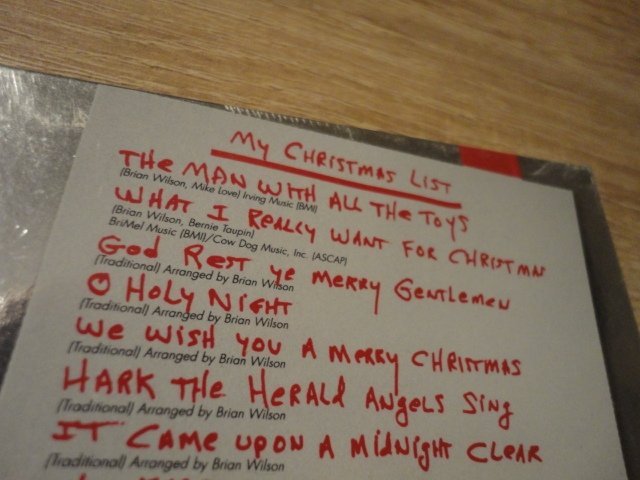 My CHRISTMAS LIST
THE MAN WITH ALL THE TOYS
(Brian Wilson, Mike Love) Irving Music (BMI)
WHAT I REALLY WANT FOR CHRISTMAS
(Brian Wilson, Bernie Taupin)
BriMel Music (BMI)/Cow Dog Music, Inc. (ASCAP)
God REST ye MERRY GENTLEMEN
(Traditional) Arranged by Brian Wilson
O HOLY NIGHT
(Traditional) Arranged by Brian Wilson
WE WISH YOU A MERRY CHRISTMAS
(Traditional) Arranged by Brian Wilson
HARK THE HERALD ANGELS SING
(Traditional) Arranged by Brian Wilson
IT CAME UPON A MIDNIGHT CLEAR
(Traditional) Arranged by Brian Wilson